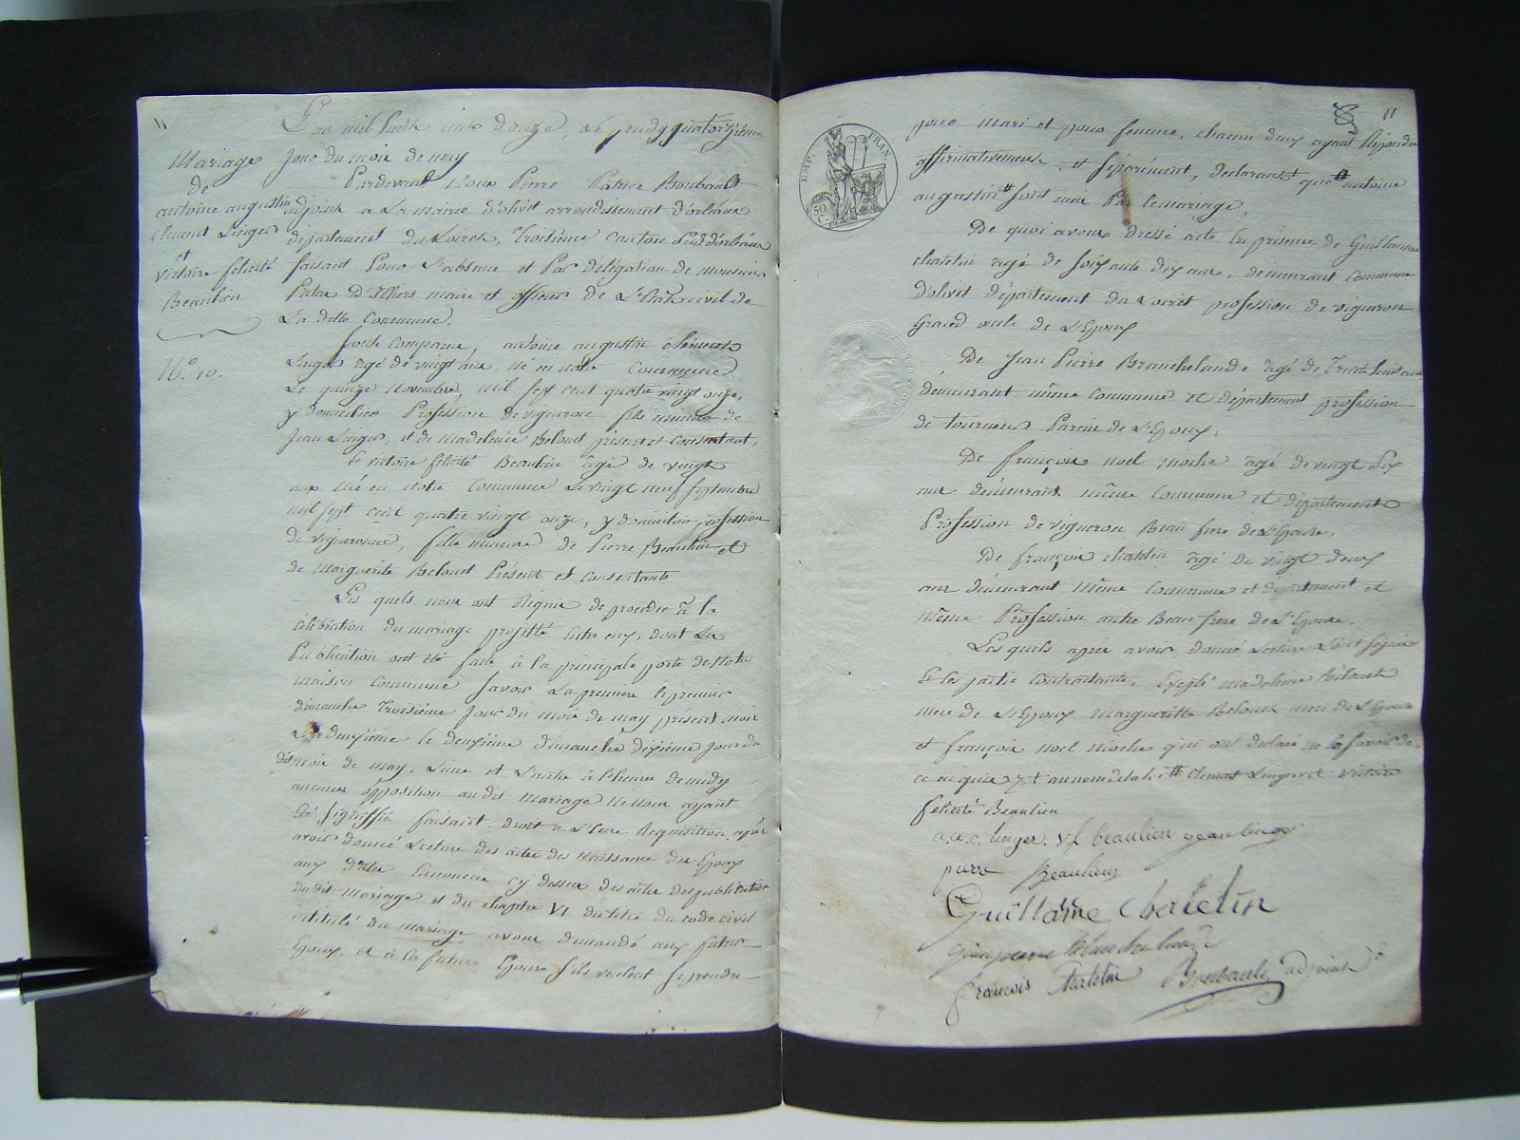 11
Mariage
de
antoine augustin
Clement Linger
et
victoire felicité
Beaulieu
N.° 10.
L'an mil huit cent douze, le jeudy quatorzieme
Jour du mois de may
Pardevant Nous Pierre Patrice Boubault
adjoint a La mairie d'olivet arrondissement d'orleans
departement du Loiret, Troisieme canton Sud d'orleans
faisant Pour l'absence et Par delegation de monsieur
maire et officier de L'Etat civil de
La ditte Commune.
Sont Comparus, antoine augustin clement
Linger agé de vingt ans né en notre Commune
Le quinze Novembre, mil sept cent quatre vingt onze,
y domicilier Profession de vigneron fils mineur de
Jean Linger, et de Madeleine Beloust present et Consentant,
Et victoire felicité Beaulieu agé de vingt
ans née en Notre Commune Le vingt neuf Septembre
mil sept cent quatre vingt onze, y domicilier profession
de vigneronne, fille mineure de Pierre Beaulieu et
de Marguerite Beloust Présent et consentante
Les quels nous ont Requis de proceder à la
célébration du mariage projetté entre eux, dont La
Publication ont été faite à la principale porte de Notre
maison Commune Savoir La premiere le premier
dimanche Troisieme Jour du mois de may présent mois
La deuxieme le deuxieme dimanche dixieme jour du
dit mois de may, L'une et L'autre à l'heure de midy
aucune opposition au dit Mariage Ne nous ayant
été Signiffié faisant droit à Leur Requisition, après
avoir donné Lecture des actes des Naissance des Epoux
aux d'autre Enonnces cy dessus des actes des publications
du dit Mariage et du chapitre VI du titre du code civil
intitulé du mariage avons demandé aux futur
Epoux, et à la future Epouse s'ils veulent se prendre
11
EMP. FRAN.
50
C.
pour mari et pour femme, chacun deux ayant Répondu
affirmativement et séparément, declarant que antoine
augustin # sont unie Par le mariage,
De quoi avons dressé acte En presence de Guillaume
chatelin agé de soixante dix ans, demeurant Commune
d'olivet département du Loiret profession de vigneron
Grand oncle de L'Epoux
De Jean Pierre Branchelande agé de Trente huit ans
demeurant même Commune et département profession
de tourneur Parein de L'Epoux,
De françois noel moche agé de vingt Six
ans demeurant même Commune et département
Profession de vigneron Beau frere de L'Epouse,
De françois chatelin agé de vingt deux
ans demeurant même Commune et département et
même Profession autre Beau frere de L'Epouse.
Les quels après avoir donné Lecture L'ont signé
Et les partie contractante, Excepté madeleine Beloust
mere de L'Epoux Margueritte Beloust mere de L'Epouse
et françois noel moche qui ont declaré ne le savoir de
ce acquis # Clement Linger et victoire
felicité Beaulieu
a. a. c. linger. v f beaulieu jean linger
pierre Beaulieu
Guillaume chatelin
françois chatelin Boubault adjoint